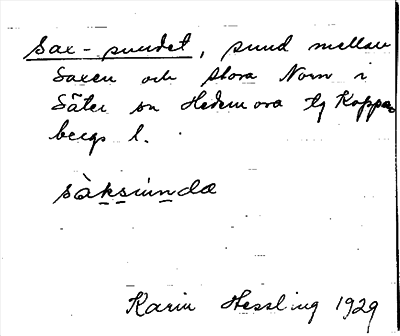 Sax-sundet, sund mellan
Saxen och Stora Norn i
Säter sn Hedemora tg Koppar
bergs l.
sàksundæ
Karin Hessling 1929